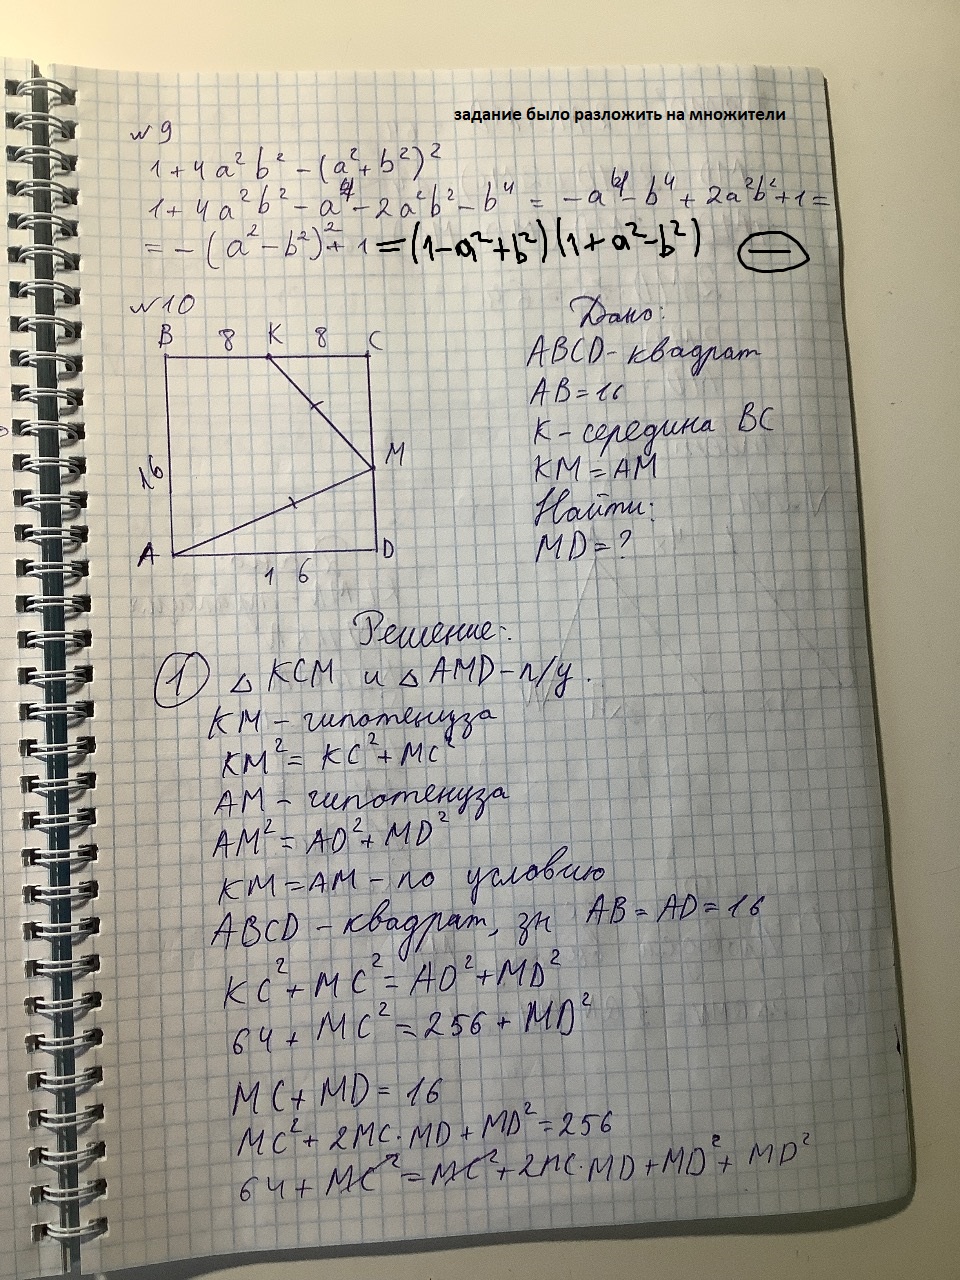 задание было разложить на множители
№9
1+4a²b²-(a²+b²)²
1+4a²b²-a⁴-2a²b²-b⁴=-a⁴-b⁴+2a²b²+1=
=-(a²-b²)²+1=(1-a²+b²)(1+a²-b²) –
№10
B 8 K 8 C
16
M
A D
16
Дано:
ABCD-квадрат
AB=16
K-середина BC
KM=AM
Найти:
MD=?
Решение:
1 △KCM и △AMD-п/у.
KM-гипотенуза
KM²=KC²+MC²
AM-гипотенуза
AM²=AD²+MD²
KM=AM-по условию
ABCD-квадрат, зн AB=AD=16
KC²+MC²=AD²+MD²
64+MC²=256+MD²
MC+MD=16
MC²+2MC·MD+MD²=256
64+MC²=MC²+2MC·MD+MD²+MD²